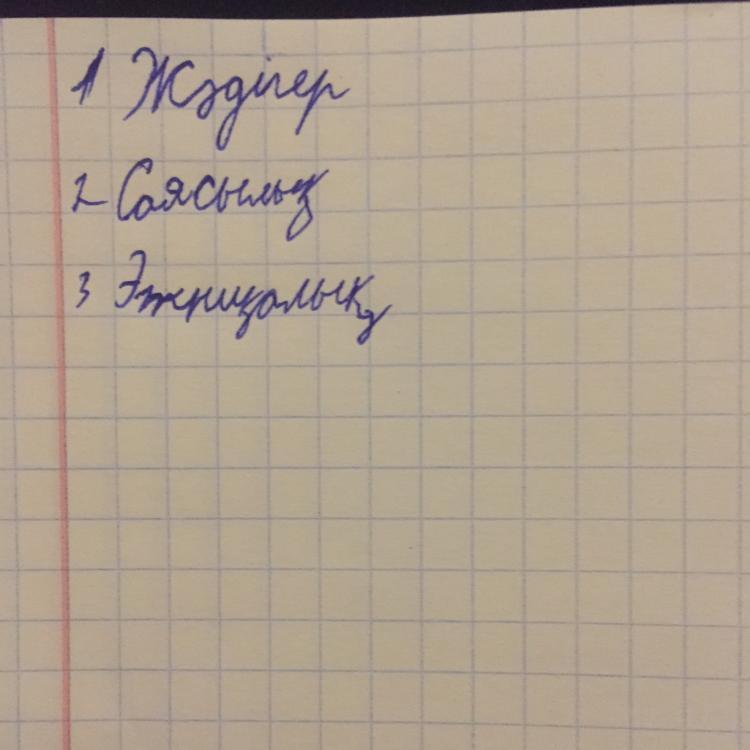 1 Жәдігер
2 Саясылық
3 Этниқалық